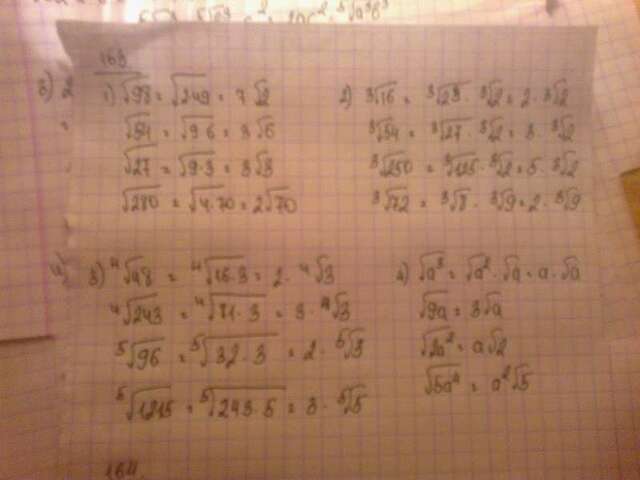 169
1) √98 = √2·49 = 7√2
√54 = √9·6 = 3√6
√27 = √9·3 = 3√3
√280 = √4·70 = 2√70
2) ³√16 = ³√2³ · ³√2 = 2 · ³√2
³√54 = ³√27 · ³√2 = 3 · ³√2
³√250 = ³√125 · ³√2 = 5 · ³√2
³√72 = ³√8 · ³√9 = 2 · ³√9
3) ⁴√48 = ⁴√16·3 = 2 · ⁴√3
⁴√243 = ⁴√81·3 = 3 · ⁴√3
⁵√96 = ⁵√32·3 = 2 · ⁵√3
⁵√1215 = ⁵√243·5 = 3 · ⁵√5
4) √a³ = √a² · √a = a · √a
√9a = 3√a
√2a² = a√2
√5a⁴ = a²√5